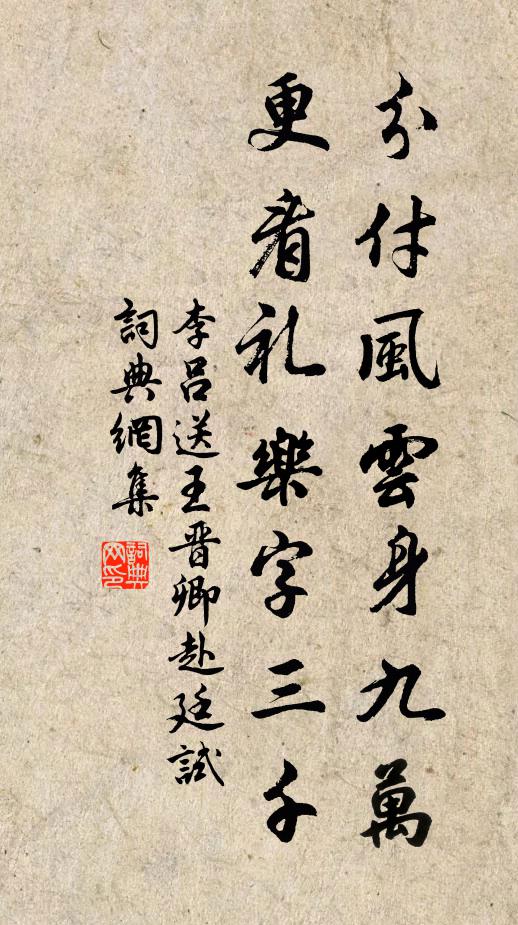 分付風雲身九萬
更看礼樂字三千
李呂送王晋卿赴廷試
詞典網集
詞典網印